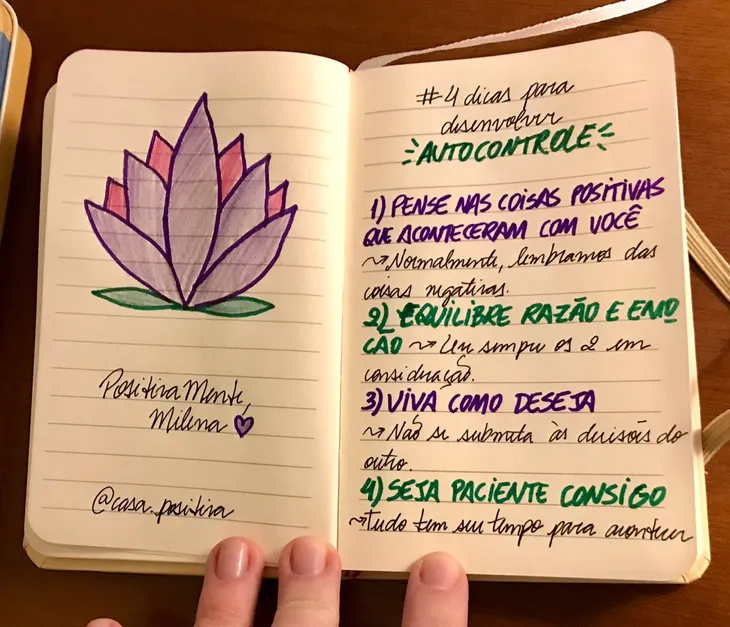 Positiva Mente,
Milena
@casa.positiva
#4 dicas para
desenvolver
AUTOCONTROLE
1) PENSE NAS COISAS POSITIVAS
QUE ACONTECERAM COM VOCÊ
↝Normalmente, lembramos das
coisas negativas.
2) EQUILIBRE RAZÃO E EMO
ÇÃO ↝ Leve sempre os 2 em
consideração.
3) VIVA COMO DESEJA
↝ Não se submeta às decisões do
outro.
4) SEJA PACIENTE CONSIGO
↝Tudo tem seu tempo para acontecer